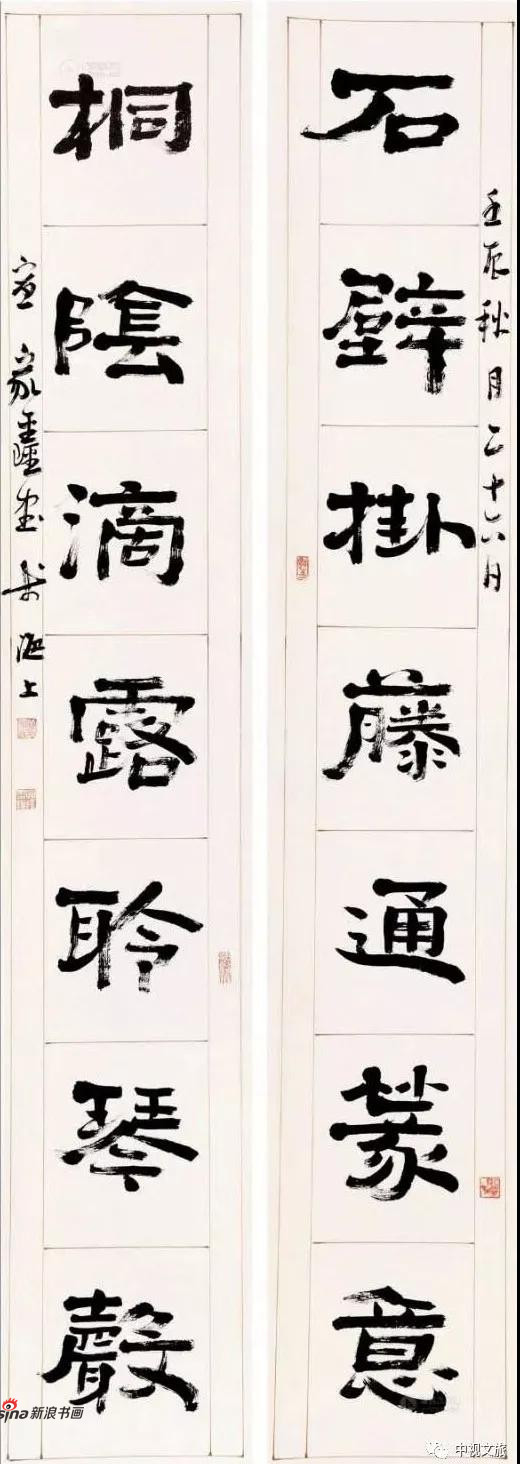 壬辰秋月二十六日
石壁掛藤通篆意
桐陰滴露聆琴聲
宣家鑫書於海上
sina新浪书画
中视文旅